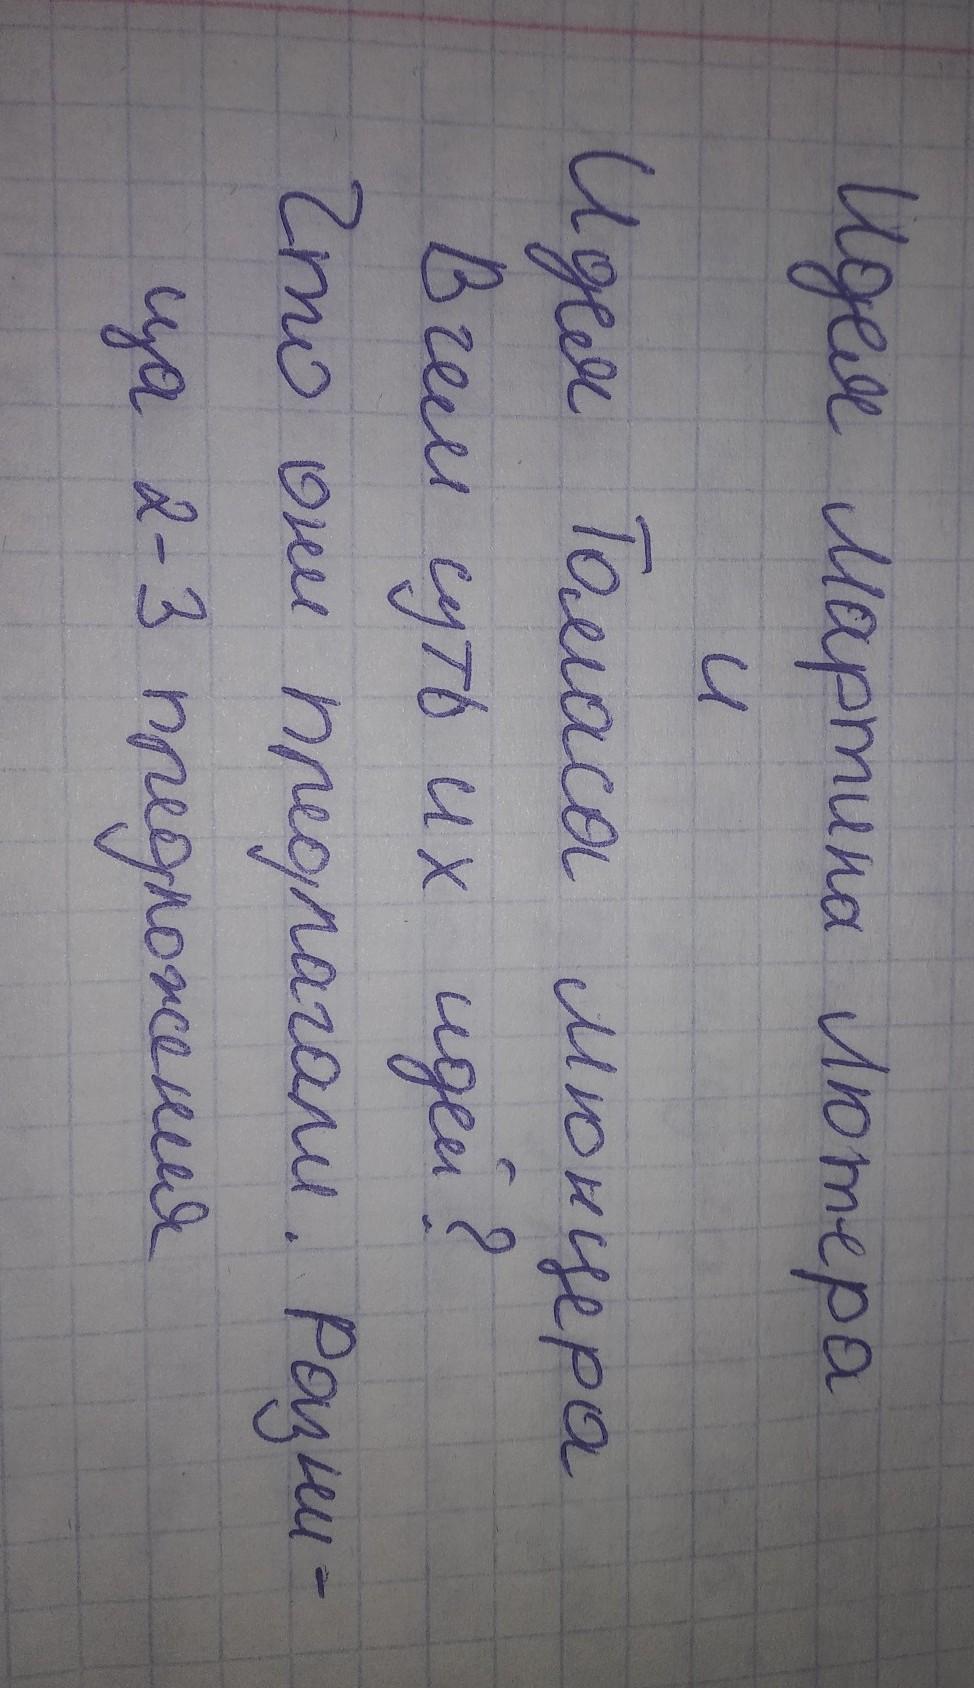 Идея Мартина Лютера
и
Идея Томаса Мюнцера
В чем суть их идей?
Что они предлагали. Разни-
ца 2-3 предложения